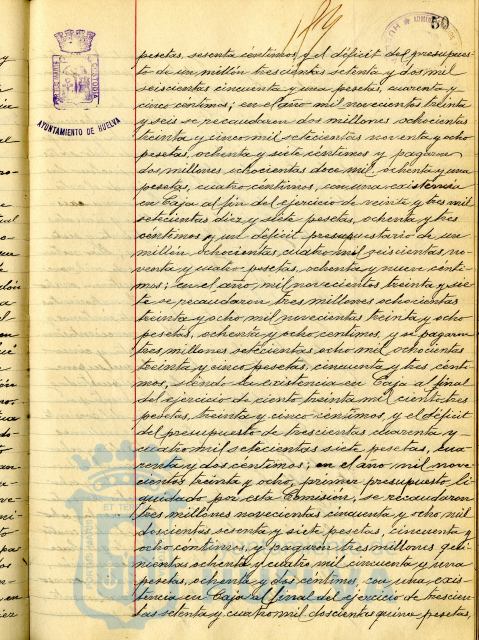 50
AYUNTAMIENTO DE HUELVA
pesetas, sesenta céntimos, y el déficit del presupues-
to de un millón trescientas setenta y dos mil
seiscientas cincuenta y una pesetas, cuarenta y
cinco céntimos; en el año mil novecientos treinta
y seis se recaudaron dos millones ochocientas
treinta y cinco mil setecientas noventa y ocho
pesetas, ochenta y siete céntimos y pagaron
dos millones ochocientas doce mil ochenta y una
pesetas, cuatro céntimos, con una existencia
en Caja al fin del ejercicio de veinte y tres mil
setecientas diez y siete pesetas, ochenta y tres
céntimos y un déficit presupuestario de un
millón ochocientas, cuatro mil seiscientas, no-
venta y cuatro pesetas, ochenta y nueve cénti-
mos; en el año, mil novecientos treinta y sie-
te se recaudaron tres millones ochocientas
treinta y ocho mil novecientas treinta y ocho
pesetas, ochenta y ocho centimos, y se pagaron
tres millones setecientas ocho mil, ochocientas
treinta y cinco pesetas, cincuenta y tres cénti-
mos, siendo la existencia en Caja al final
del ejercicio de ciento treinta mil ciento tres
pesetas, treinta y cinco céntimos, y el déficit
del presupuesto de trescientas cuarenta y
cuatro mil setecientas siete pesetas, cua-
renta y dos centimos; en el año mil nove-
cientos treinta y ocho, primer presupuesto li-
quidado por esta Comisión, se recaudaron
tres millones novecientas cincuenta y ocho mil
doscientas sesenta y siete pesetas, cincuenta y
ocho centimos, y pagaron tres millones qui-
nientas ochenta y cuatro mil cincuenta y una
pesetas, ochenta y dos céntimos, con una exis-
tencia en Caja al final del ejercicio de trescien-
tas setenta y cuatro mil doscientas quince pesetas,